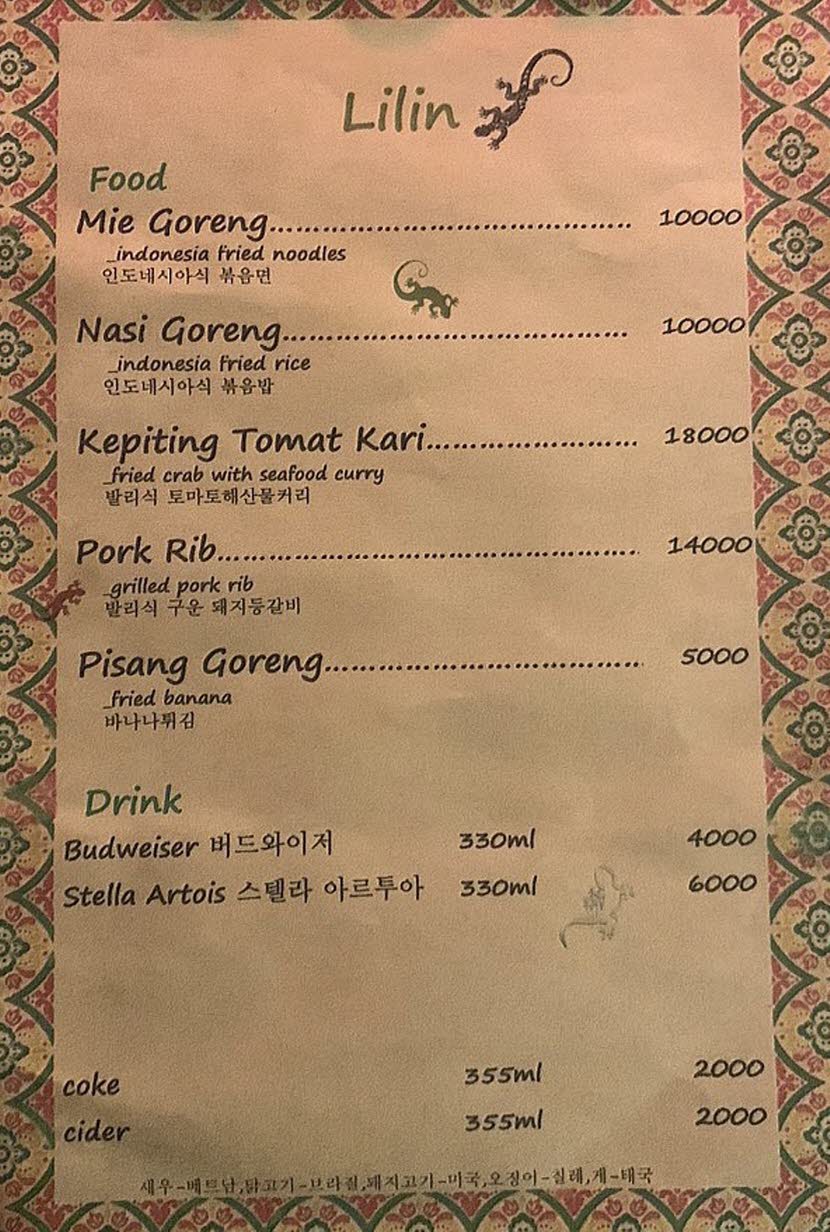 Lilin
Food
Mie Goreng.......................................... 10000
_indonesia fried noodles
인도네시아식 볶음면
Nasi Goreng........................................ 10000
_indonesia fried rice
인도네시아식 볶음밥
Kepiting Tomat Kari......................... 18000
_fried crab with seafood curry
발리식 토마토해산물커리
Pork Rib................................................. 14000
_grilled pork rib
발리식 구운 돼지등갈비
Pisang Goreng..................................... 5000
_fried banana
바나나튀김
Drink
Budweiser 버드와이저 330ml 4000
Stella Artois 스텔라 아르투아 330ml 6000
coke 355ml 2000
cider 355ml 2000
새우-베트남,닭고기-브라질,돼지고기-미국,오징어-칠레,게-태국